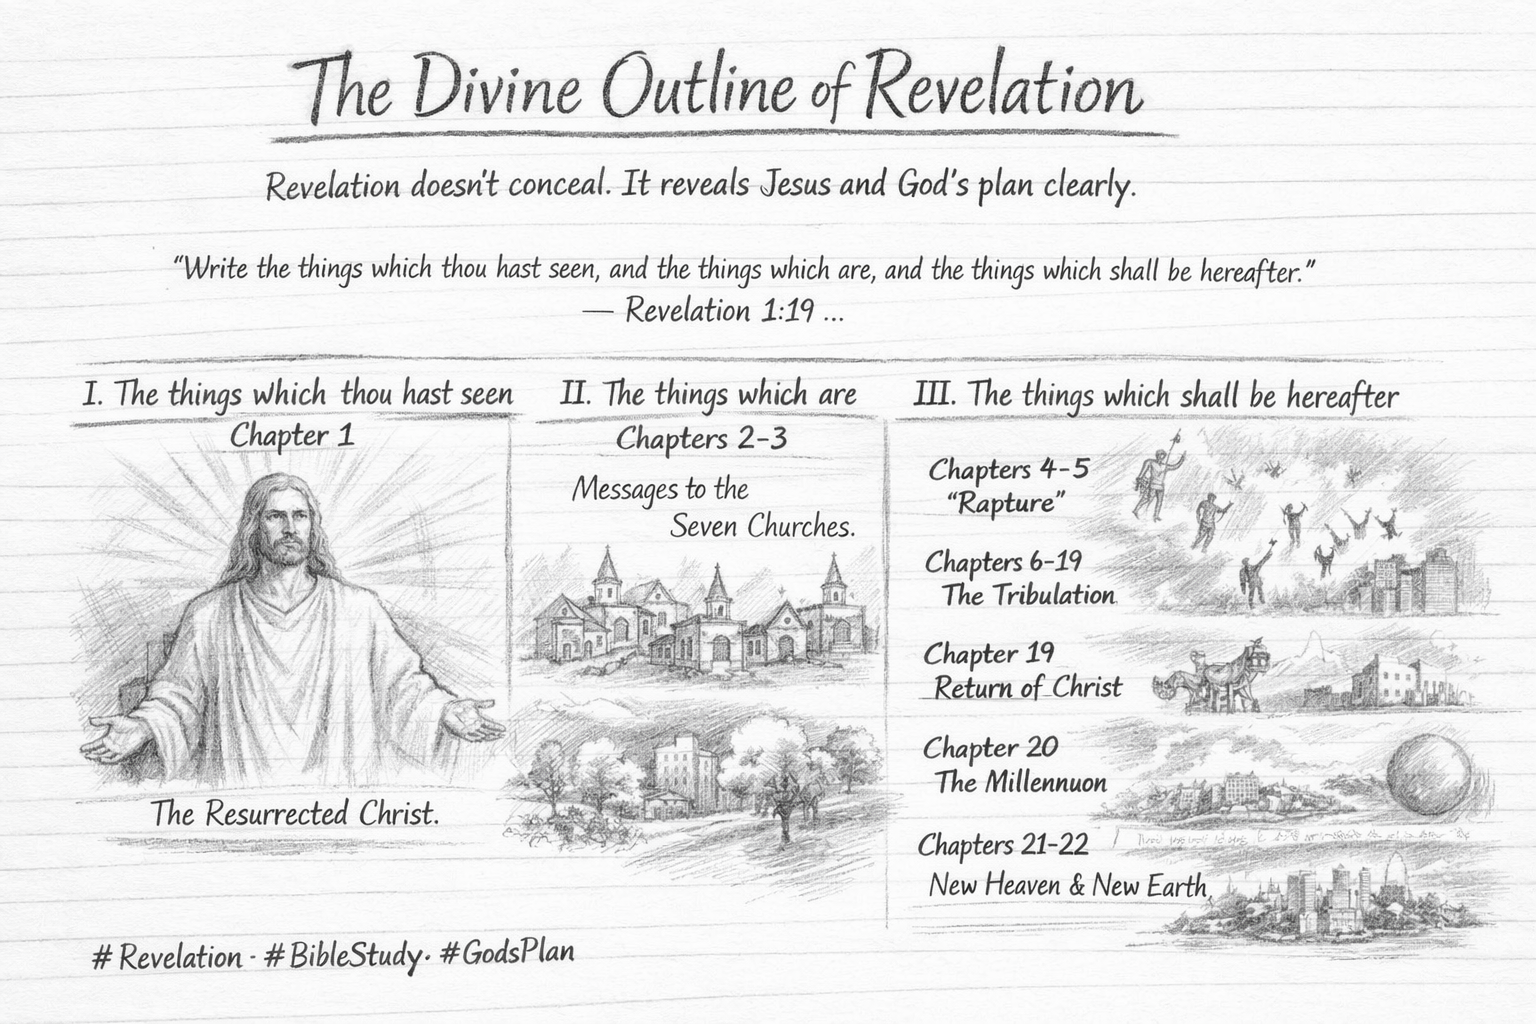 The Divine Outline of Revelation
Revelation doesn't conceal. It reveals Jesus and God's plan clearly.
"Write the things which thou hast seen, and the things which are, and the things which shall be hereafter."
— Revelation 1:19 ...
I. The things which thou hast seen
Chapter 1
The Resurrected Christ.
II. The things which are
Chapters 2-3
Messages to the
Seven Churches.
III. The things which shall be hereafter
Chapters 4-5
"Rapture"
Chapters 6-19
The Tribulation
Chapter 19
Return of Christ
Chapter 20
The Millennuon
Chapters 21-22
New Heaven & New Earth,
# Revelation - # BibleStudy. #GodsPlan